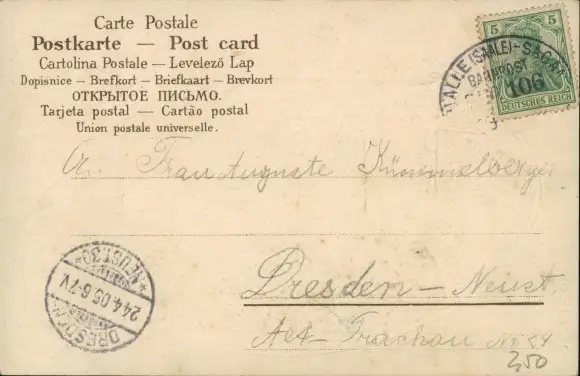 Carte Postale
Postkarte — Post card
Cartolina Postale — Levelező Lap
Dopisnice — Brefkort — Briefkaart — Brevkort
ОТКРЫТОЕ ПИСЬМО.
Tarjeta postal — Cartão postal
Union postale universelle.
5 5
DEUTSCHES REICH
HALLE (SAALE)-SAGAN
BAHNPOST
106
An Frau Auguste Kümmelberger
Dresden-Neust
Alt-Trachau No 84
2,50
DRESDEN
24.4.05.6-7V.
*NEUST.30*